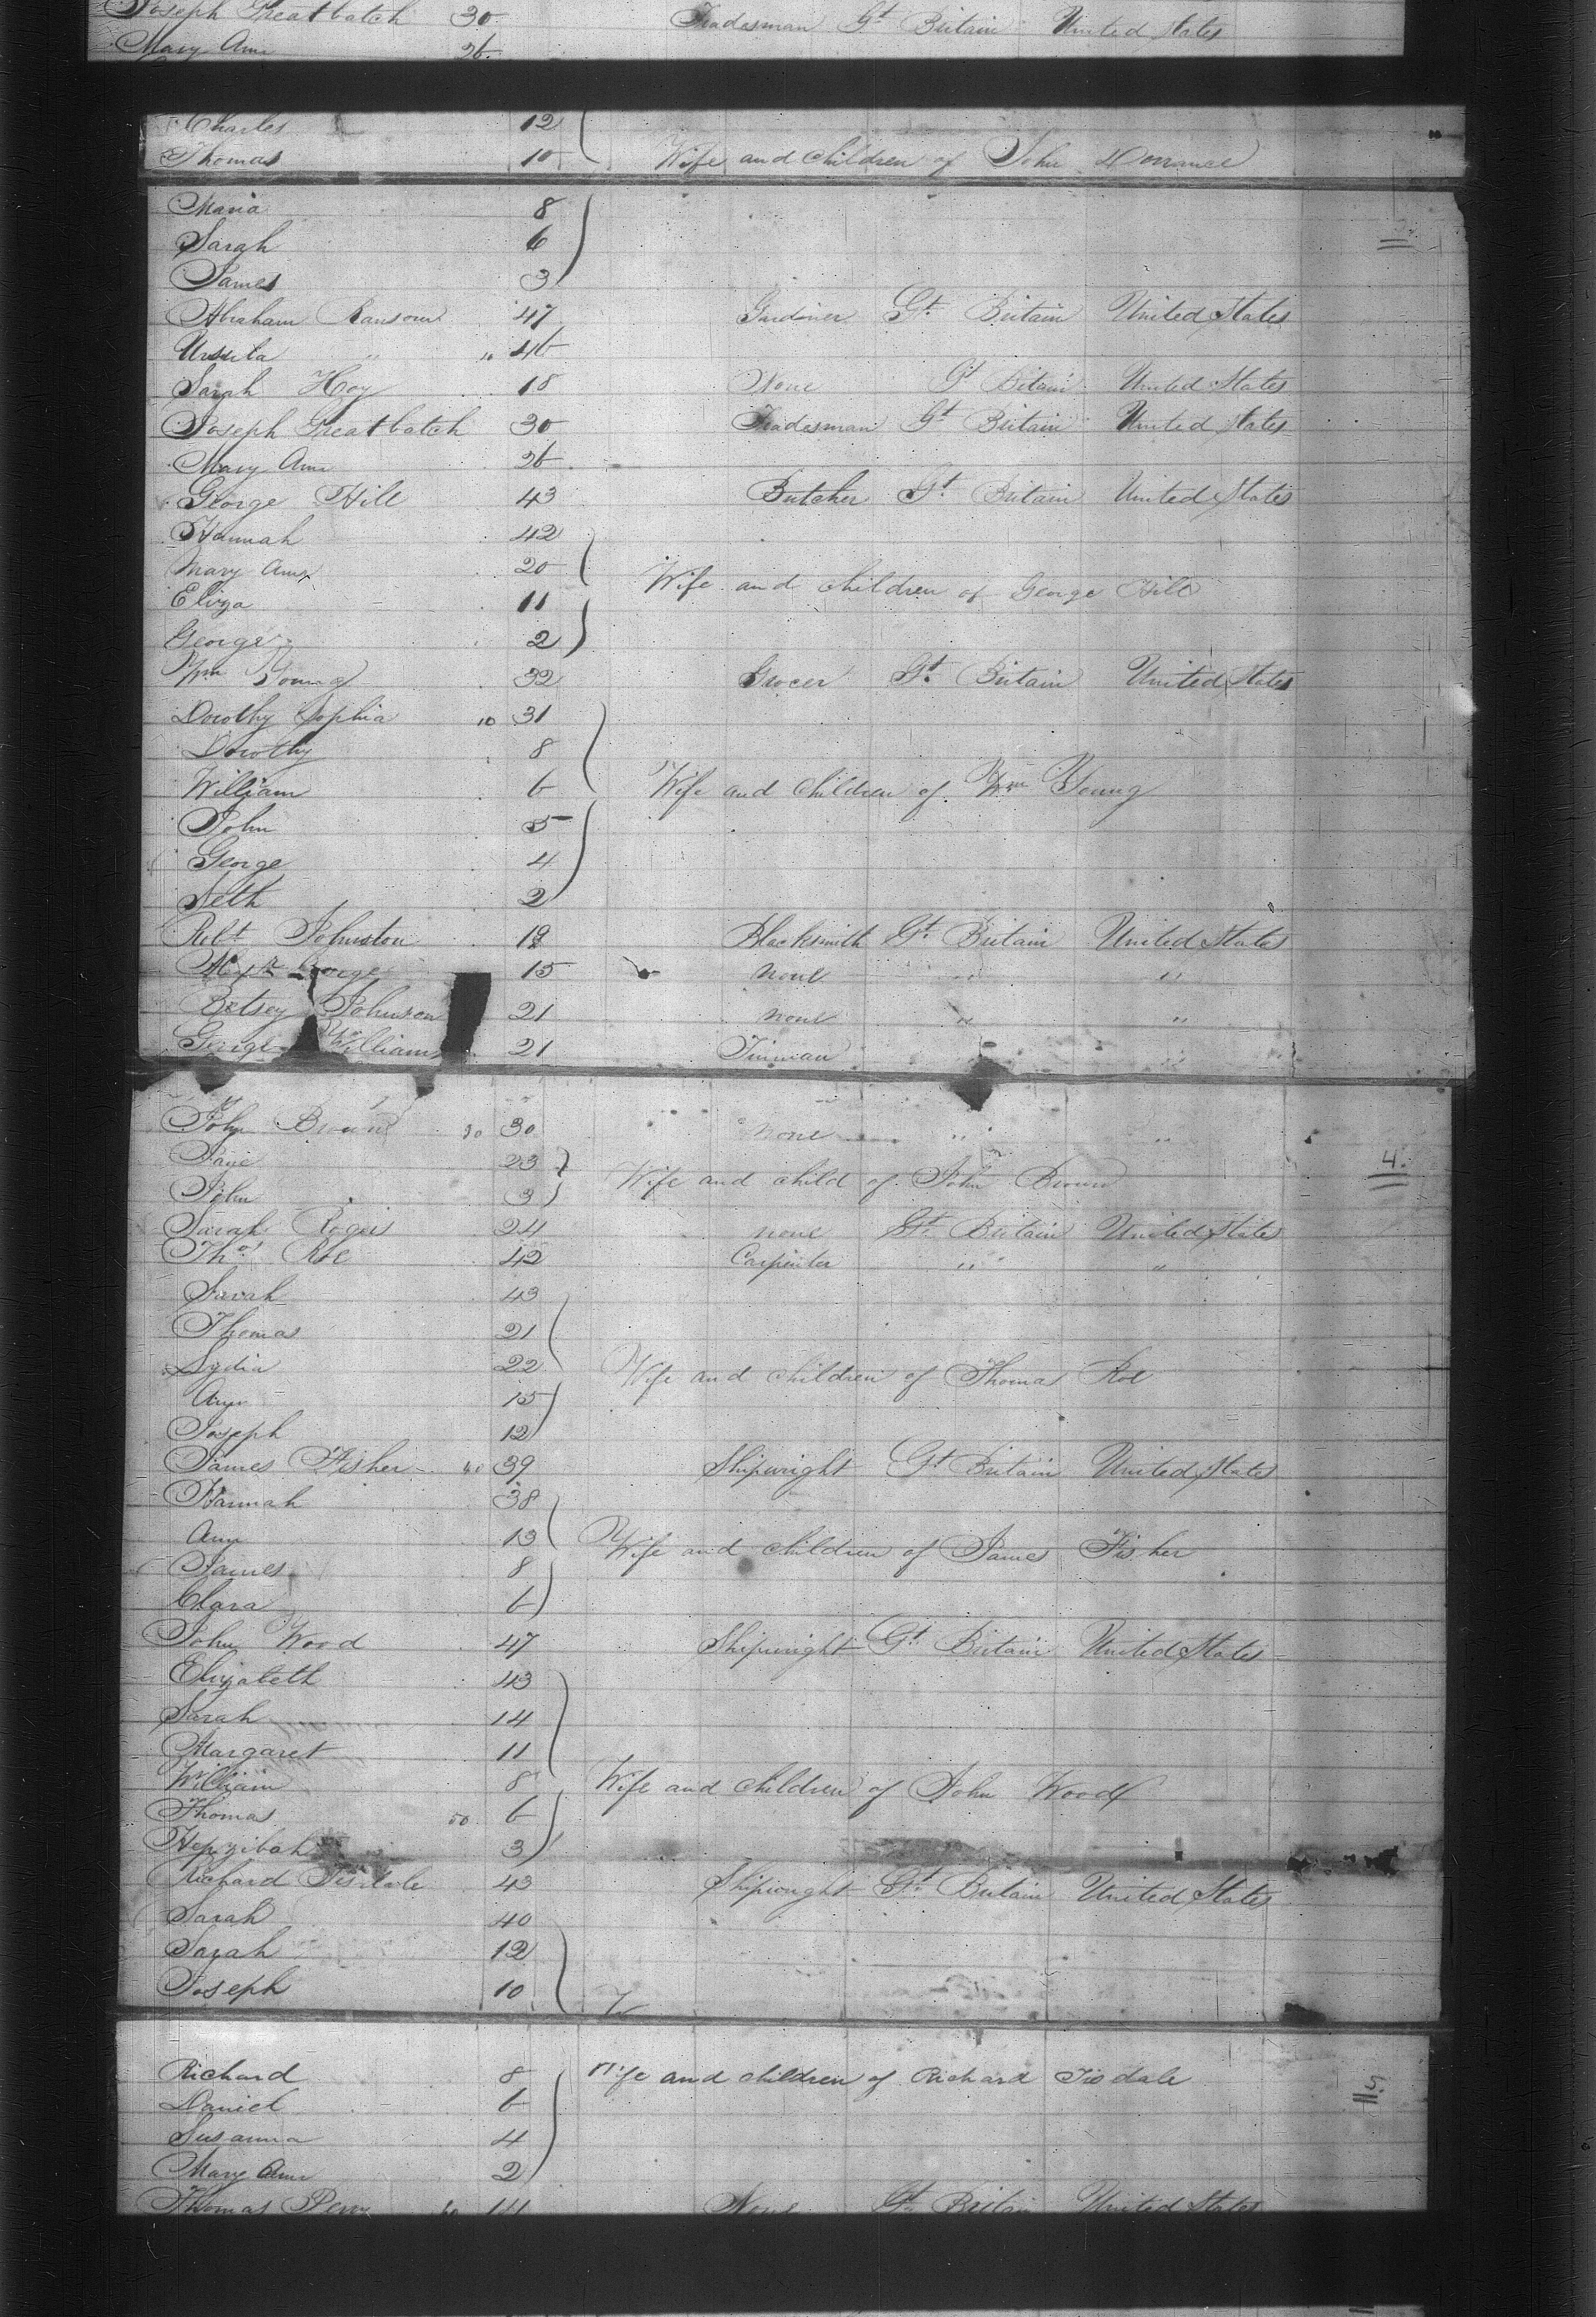 Joseph Greatbatch 30 Tradesman Gt Britain United States
Mary Ann 26
Charles 12
Thomas 10 Wife and Children of John Dorrance
Maria 8
Sarah 6
James 3
Abraham Ransom 47 Gardiner Gt Britain United States
Ursula " 46
Sarah Hoy 18 None Gt Britain United States
Joseph Greatbatch 30 Tradesman Gt Britain United States
Mary Ann 26
George Hill 43 Butcher Gt Britain United States
Hannah 42
Mary Ann 20
Wife and children of George Hill
Eliza 11
George 2
Wm Young 32 Grocer Gt Britain United States
Dorothy Sophia 10 31
Dorothy 8
William 6 Wife and Children of Wm Young
John 5
George 4
Seth 2
Robt Johnston 19 Blacksmith Gt Britain United States
George 15 none " "
Betsey Johnson 21 none " "
George Williams 21 Tinman "
John Brown 30 30 none " "
Jane 23 4.
Wife and child of John Brown
John 3
Sarah Rogers 24 none Gt Britain United States
Thos Roe 42 Carpenter " "
Sarah 43
Thomas 21
Lydia 22 Wife and children of Thomas Roe
Ann 15
Joseph 12
James Fisher 40 39 Shipwright Gt Britain United States
Hannah 38
Ann 13 Wife and children of James Fisher
James 8
Clara 6
John Wood 47 Shipwright Gt Britain United States
Elizabeth 43
Sarah 14
Margaret 11
William 8 Wife and children of John Wood
Thomas 50 6
Hepzibah 3
Richard Tisdale 43 Shipwright Gt Britain United States
Sarah 40
Sarah 12
Joseph 10
Richard 8 Wife and children of Richard Tisdale 5.
Daniel 6
Susanna 4
Mary Ann 2
Thomas Perry 60 14 None Gt Britain United States